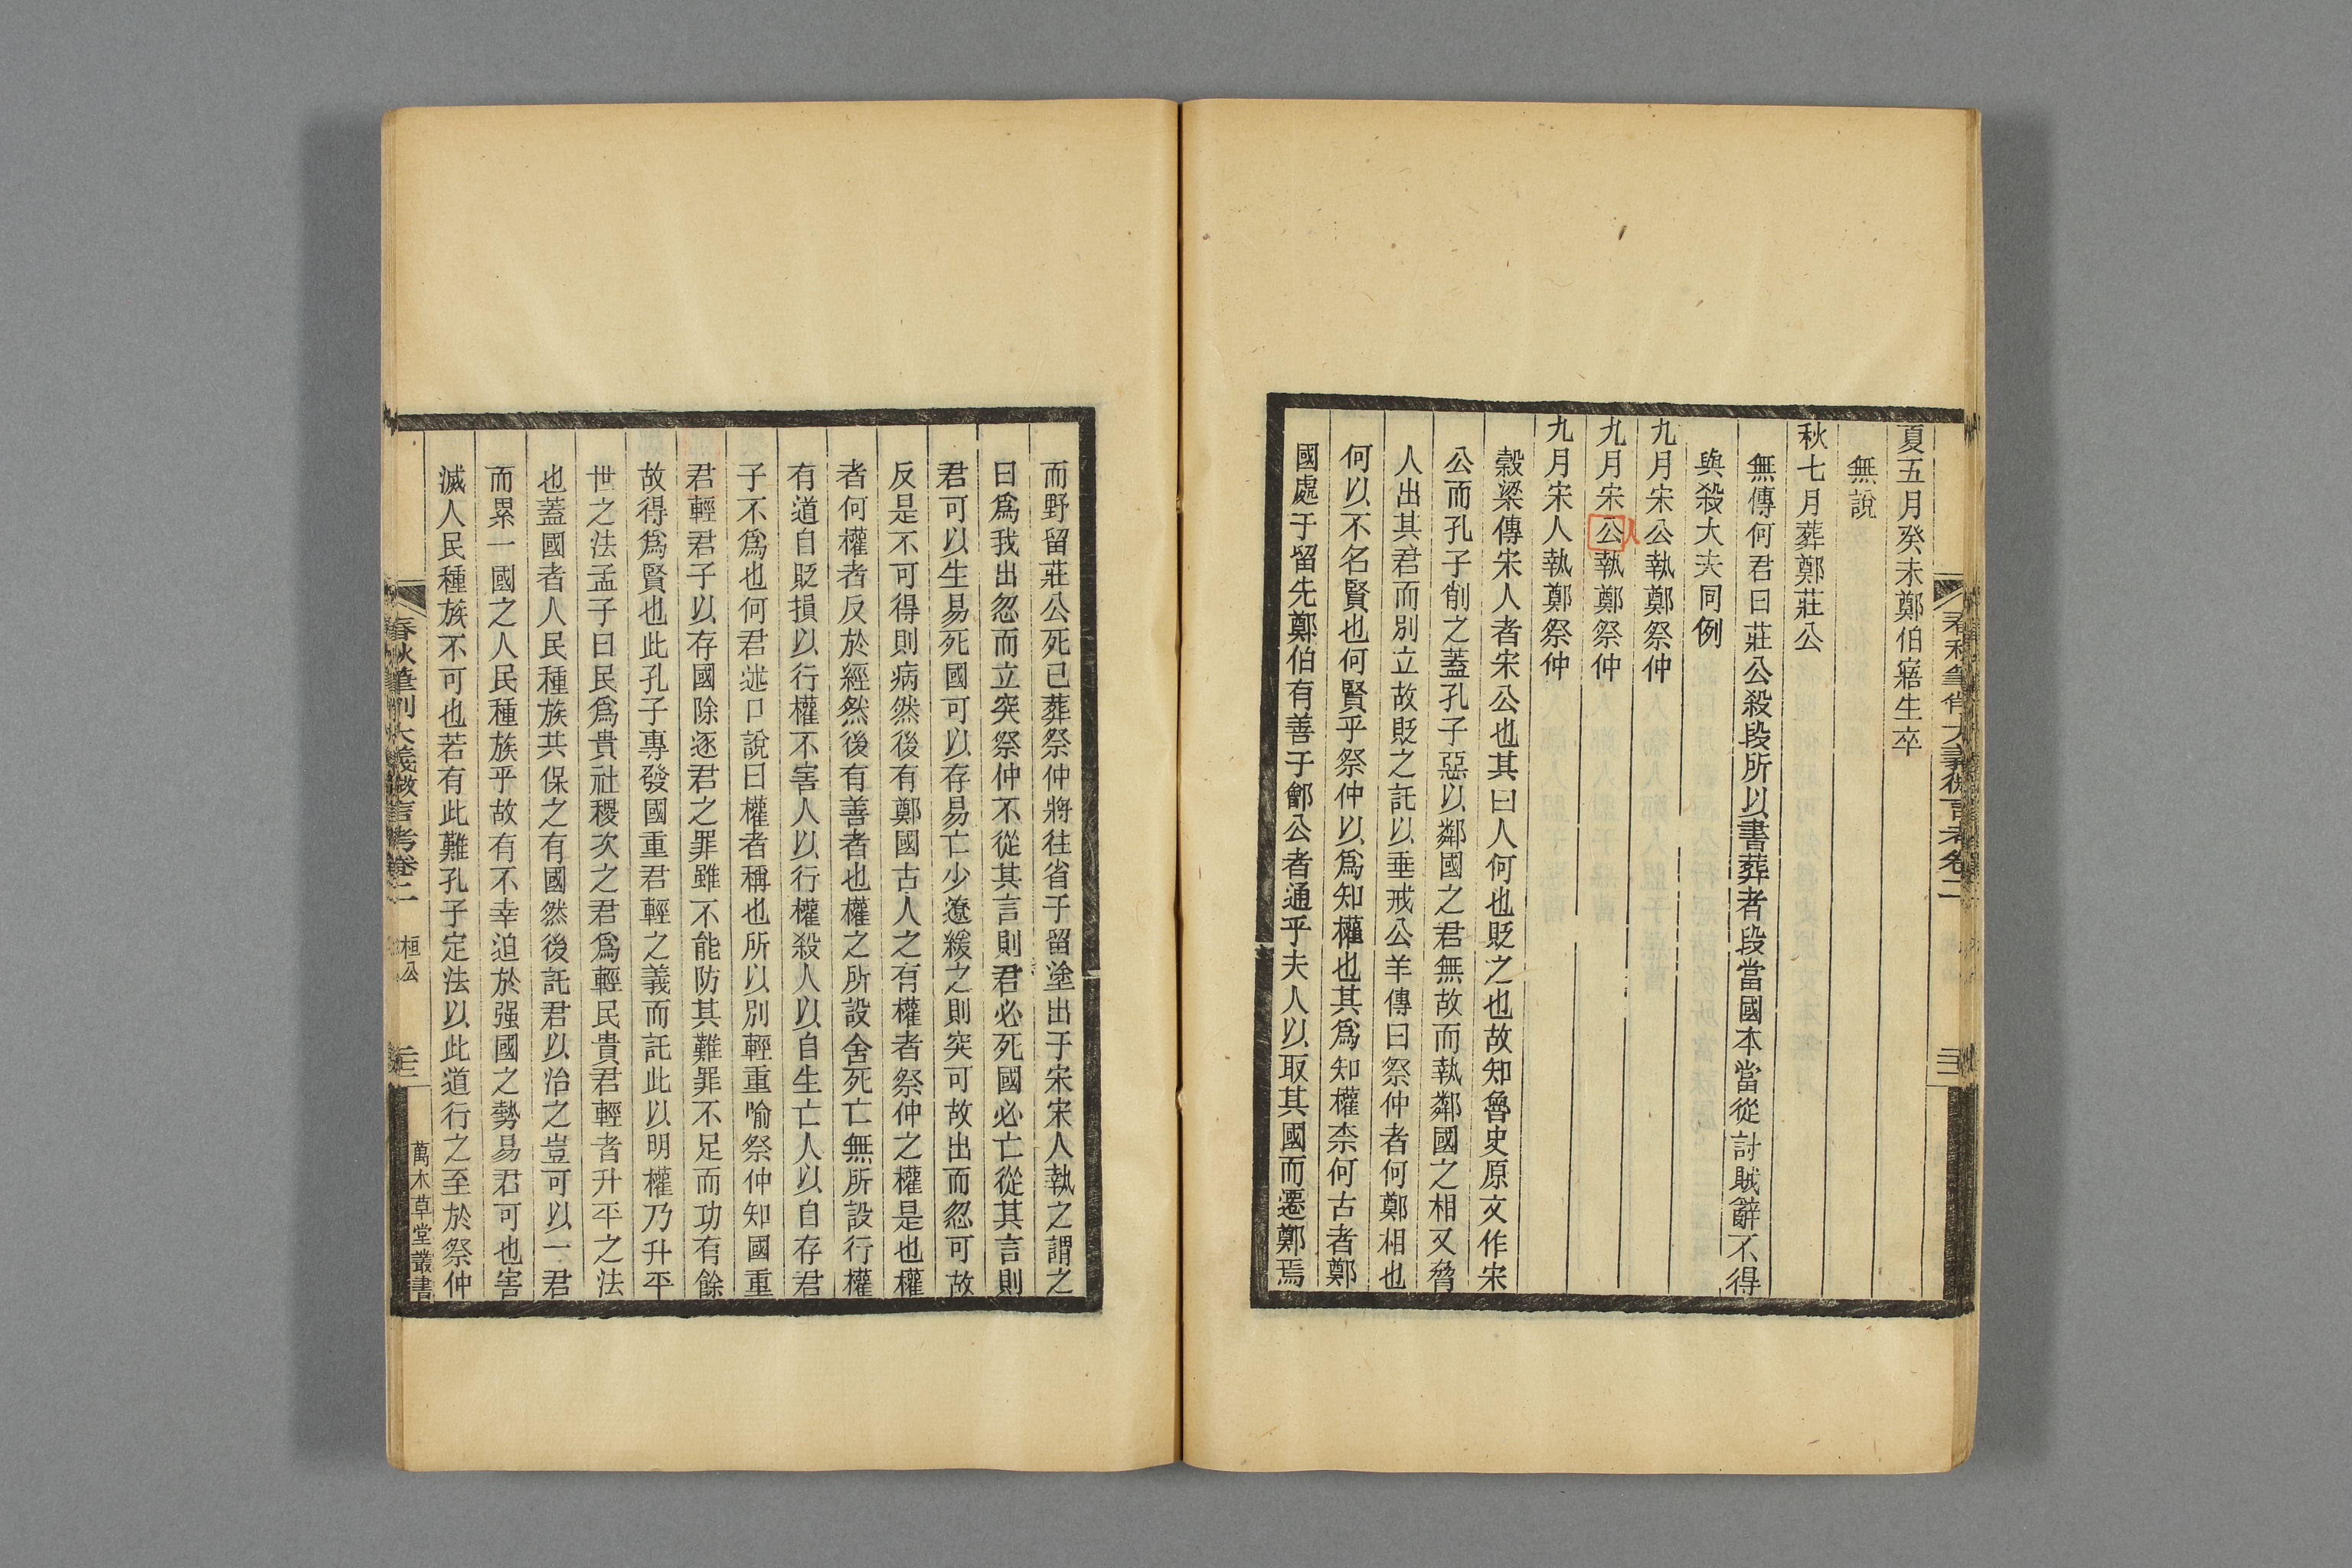 春秋筆削大義微言考卷二
夏五月癸未鄭伯寤生卒
無說
秋七月葬鄭莊公
無傳何君曰莊公殺段所以書葬者段當國本當從討賊辭不得
與殺大夫同例
九月宋公執鄭祭仲
九月宋公人執鄭祭仲
九月宋人執鄭祭仲
穀梁傳宋人者宋公也其曰人何也貶之也故知魯史原文作宋
公而孔子削之蓋孔子惡以鄰國之君無故而執鄰國之相又脅
人出其君而別立故貶之託以垂戒公羊傳曰祭仲者何鄭相也
何以不名賢也何賢乎祭仲以爲知權也其爲知權柰何古者鄭
國處于留先鄭伯有善于鄶公者通乎夫人以取其國而遷鄭焉
而野留莊公死已葬祭仲將往省于留塗出于宋宋人執之謂之
曰爲我出忽而立突祭仲不從其言則君必死國必亡從其言則
君可以生易死國可以存易亡少遼緩之則突可故出而忽可故
反是不可得則病然後有鄭國古人之有權者祭仲之權是也權
者何權者反於經然後有善者也權之所設舍死亡無所設行權
有道自貶損以行權不害人以行權殺人以自生亡人以自存君
子不爲也何君述口說曰權者稱也所以別輕重喻祭仲知國重
君輕君子以存國除逐君之罪雖不能防其難罪不足而功有餘
故得爲賢也此孔子專發國重君輕之義而託此以明權乃升平
世之法孟子曰民爲貴社稷次之君爲輕民貴君輕者升平之法
也蓋國者人民種族共保之有國然後託君以治之豈可以一君
而累一國之人民種族乎故有不幸迫於强國之勢易君可也害
滅人民種族不可也若有此難孔子定法以此道行之至於祭仲
春秋筆削大義微言考卷二 桓公
萬木草堂叢書